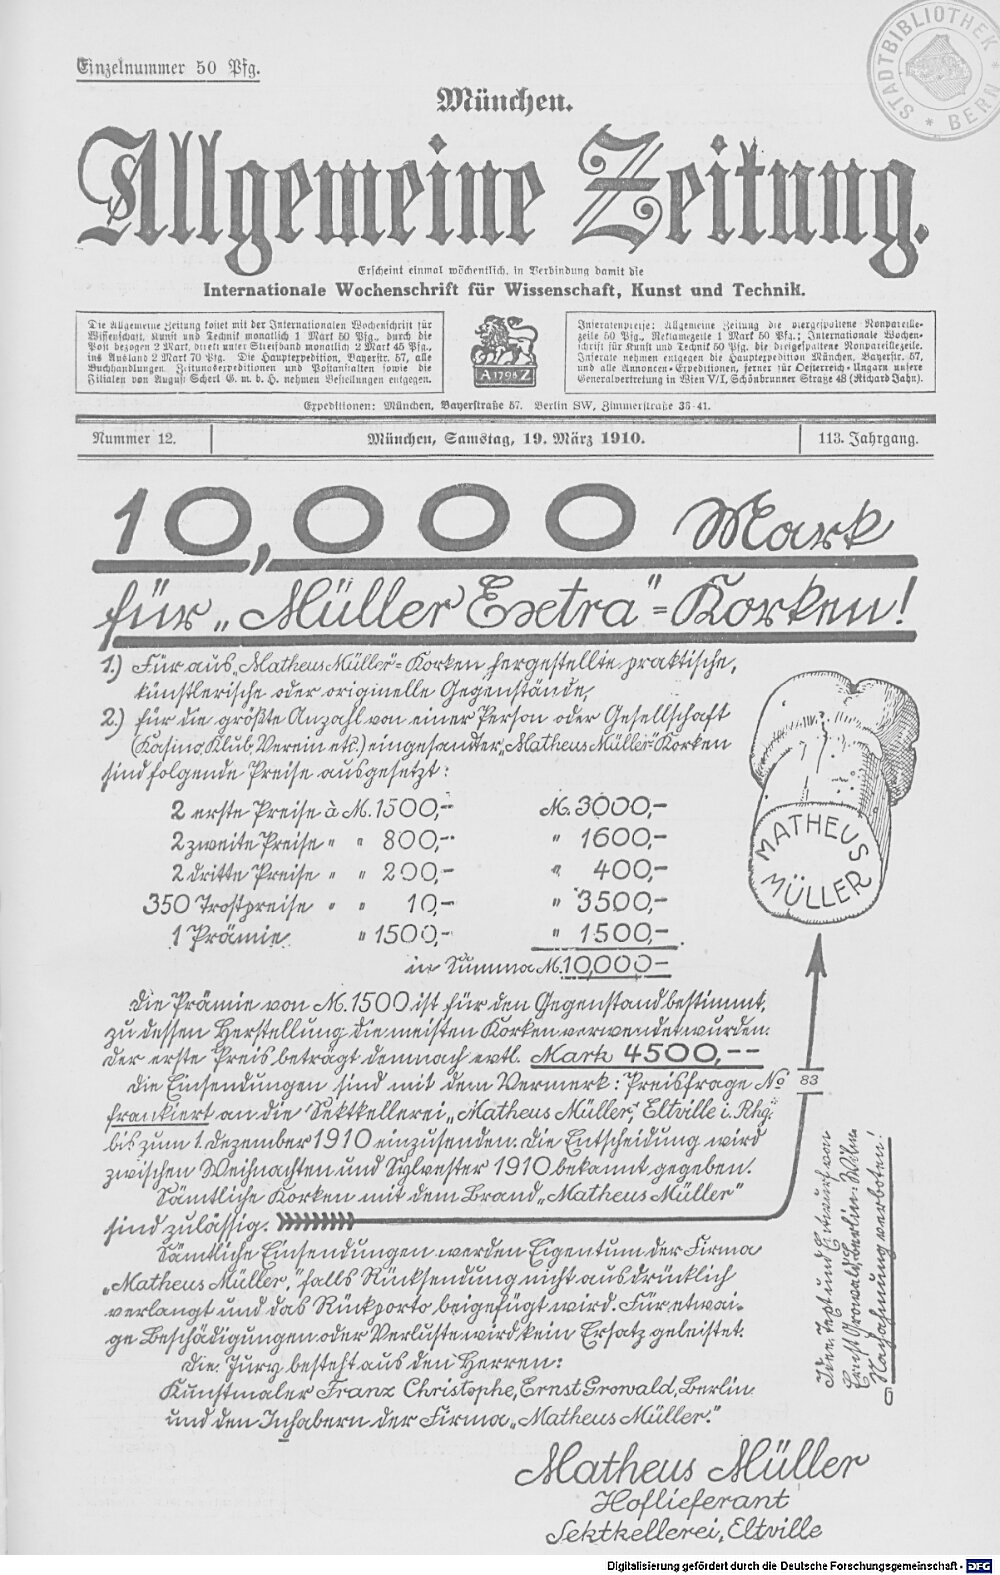 Einzelnummer 50 Pfg.
STADTBIBLIOTHEK * BERN *
München.
Allgemeine Zeitung.
Erscheint einmal wöchentlich, in Verbindung damit die
Internationale Wochenschrift für Wissenschaft, Kunst und Technik.
Die Allgemeine Zeitung kostet mit der Internationalen Wochenschrift für
Wissenschaft, Kunst und Technik monatlich 1 Mark 50 Pfg., durch die
Post bezogen 2 Mark, direkt unter Streifband monatlich 2 Mark 45 Pfg.,
ins Ausland 2 Mark 70 Pfg. Die Hauptexpedition, Bayerstr. 57, alle
Buchhandlungen, Zeitungsexpeditionen und Postanstalten sowie die
Filialen von August Scherl G. m. b. H. nehmen Bestellungen entgegen.
A 1798 Z
Inseratenpreise: Allgemeine Zeitung die viergespaltene Nonpareille-
zeile 50 Pfg., Reklamezeile 1 Mark 50 Pfg.; Internationale Wochen-
schrift für Kunst und Technik 50 Pfg. die dreigespaltene Nonpareillezeile.
Inserate nehmen entgegen die Hauptexpedition München, Bayerstr. 57,
und alle Annoncen-Expeditionen, ferner für Oesterreich-Ungarn unsere
Generalvertretung in Wien V/I, Schönbrunner Straße 48 (Richard Jahn).
Expeditionen: München, Bayerstraße 57. Berlin SW, Zimmerstraße 36-41.
Nummer 12.
München, Samstag, 19. März 1910.
113. Jahrgang.
10,000 Mark
für „Müller Extra"=Korken!
1.) Für aus „Matheus Müller"=Korken hergestellte praktische,
künstlerische oder originelle Gegenstände,
2.) für die größte Anzahl von einer Person oder Gesellschaft
(Kasino, Klub, Verein etc.) eingesandter „Matheus Müller"=Korken
sind folgende Preise ausgesetzt:
2 erste Preise à M. 1500,- M. 3000,-
2 zweite Preise " " 800,- " 1600,-
2 dritte Preise " " 200,- " 400,-
350 Trostpreise " " 10,- " 3500,-
1 Prämie " 1500,- " 1500,-
in Summa M. 10,000-
MATHEUS
MÜLLER
Die Prämie von M. 1500 ist für den Gegenstand bestimmt,
zu dessen Herstellung die meisten Korken verwendet wurden.
Der erste Preis beträgt demnach evtl. Mark 4500,--
Die Einsendungen sind mit dem Vermerk: Preisfrage No 83
frankiert an die Sektkellerei „Matheus Müller", Eltville i. Rhg.
bis zum 1. Dezember 1910 einzusenden. Die Entscheidung wird
zwischen Weihnachten und Sylvester 1910 bekannt gegeben.
Sämtliche Korken mit dem Brand „Matheus Müller"
sind zulässig.
Sämtliche Einsendungen werden Eigentum der Firma
„Matheus Müller," falls Rücksendung nicht ausdrücklich
verlangt und das Rückporto beigefügt wird. Für etwai-
ge Beschädigungen oder Verluste wird kein Ersatz geleistet.
Die Jury besteht aus den Herren:
Kunstmaler Franz Christophe, Ernst Growald, Berlin
und den Inhabern der Firma „Matheus Müller."
Idee, Text und Entwurf von
Ernst Growald, Berlin-Wilm.
Nachahmung verboten!
Matheus Müller
Hoflieferant
Sektkellerei, Eltville
Digitalisierung gefördert durch die Deutsche Forschungsgemeinschaft - DFG